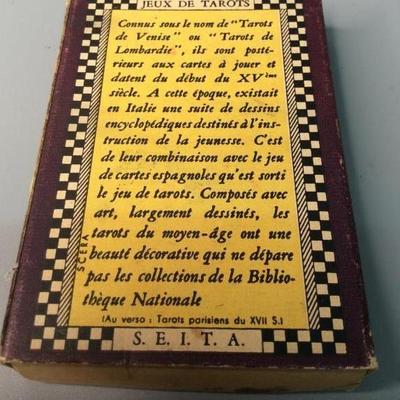 JEUX DE TAROTS
Connus sous le nom de "Tarots
de Venise" ou "Tarots de
Lombardie", ils sont posté-
rieurs aux cartes à jouer et
datent du début du XVème
siècle. A cette époque, existait
en Italie une suite de dessins
encyclopédiques destinés à l'ins-
truction de la jeunesse. C'est
de leur combinaison avec le jeu
de cartes espagnoles qu'est sorti
le jeu de tarots. Composés avec
art, largement dessinés, les
tarots du moyen-âge ont une
beauté décorative qui ne dépare
pas les collections de la Biblio-
thèque Nationale
(Au verso : Tarots parisiens du XVII S.)
SCERA
S. E. I. T. A.